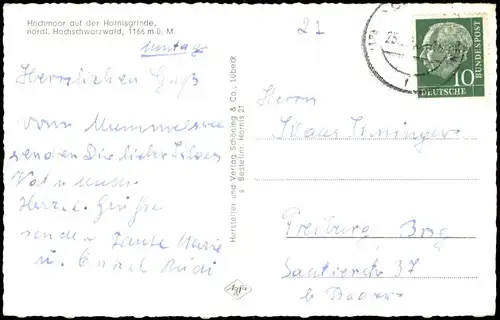 Hochmoor auf der Hornisgrinde,
nördl. Hochschwarzwald, 1166 m ü. M.
21
Herzlichen Gruß
vom Mummelsee
senden Dir lieber Klaus
Vat u. Mutti
Herzl. Grüße
sende Tante Marie
u. Onkel Rudi
Hersteller und Verlag Schöning & Co., Lübeck
Bestellnr. Hornis 21
10
DEUTSCHE BUNDESPOST
Herrn
Klaus
Freiburg Brsg
37